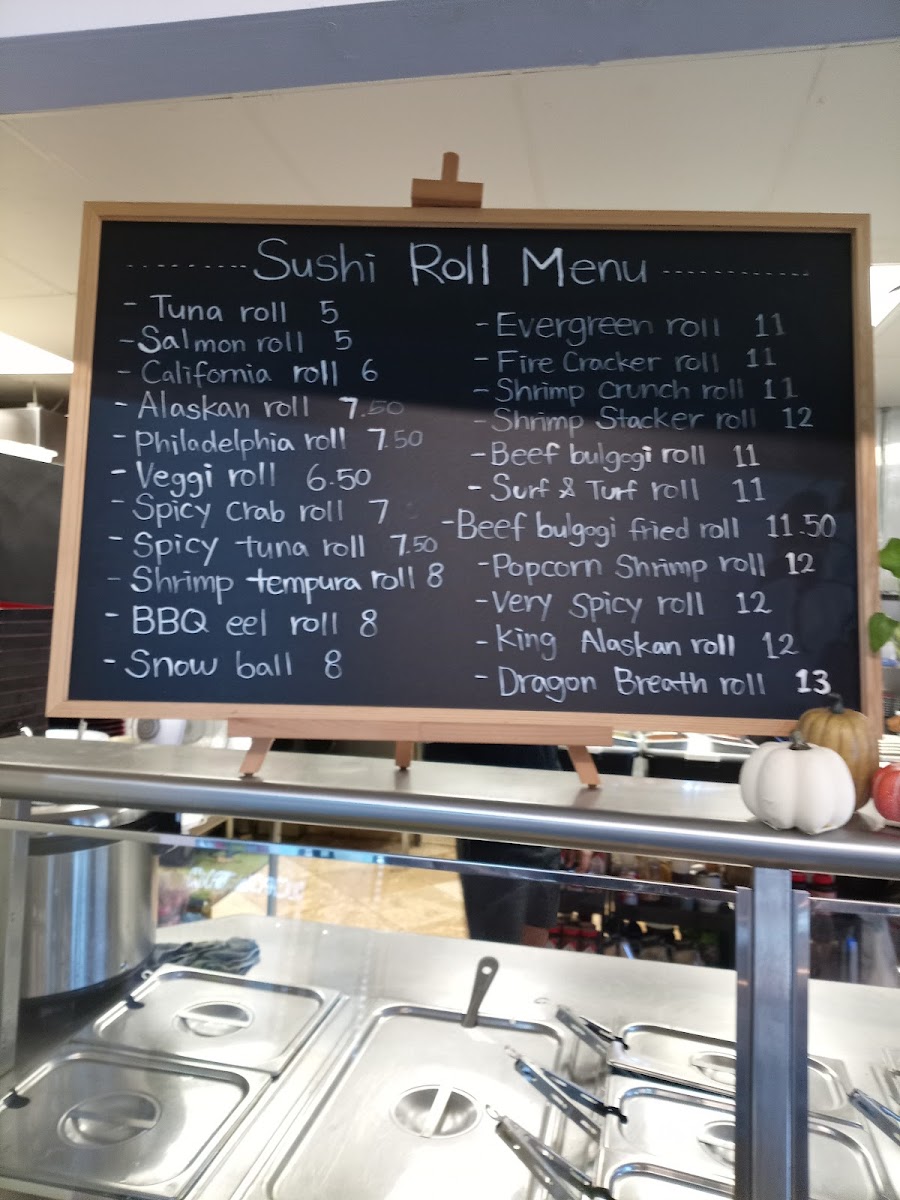 Sushi Roll Menu
- Tuna roll 5
- Salmon roll 5
- California roll 6
- Alaskan roll 7.50
- Philadelphia roll 7.50
- Veggi roll 6.50
- Spicy crab roll 7
- Spicy tuna roll 7.50
- Shrimp tempura roll 8
- BBQ eel roll 8
- Snow ball 8
- Evergreen roll 11
- Fire Cracker roll 11
- Shrimp crunch roll 11
- Shrimp Stacker roll 12
- Beef bulgogi roll 11
- Surf & Turf roll 11
- Beef bulgogi fried roll 11.50
- Popcorn Shrimp roll 12
- Very Spicy roll 12
- King Alaskan roll 12
- Dragon Breath roll 13